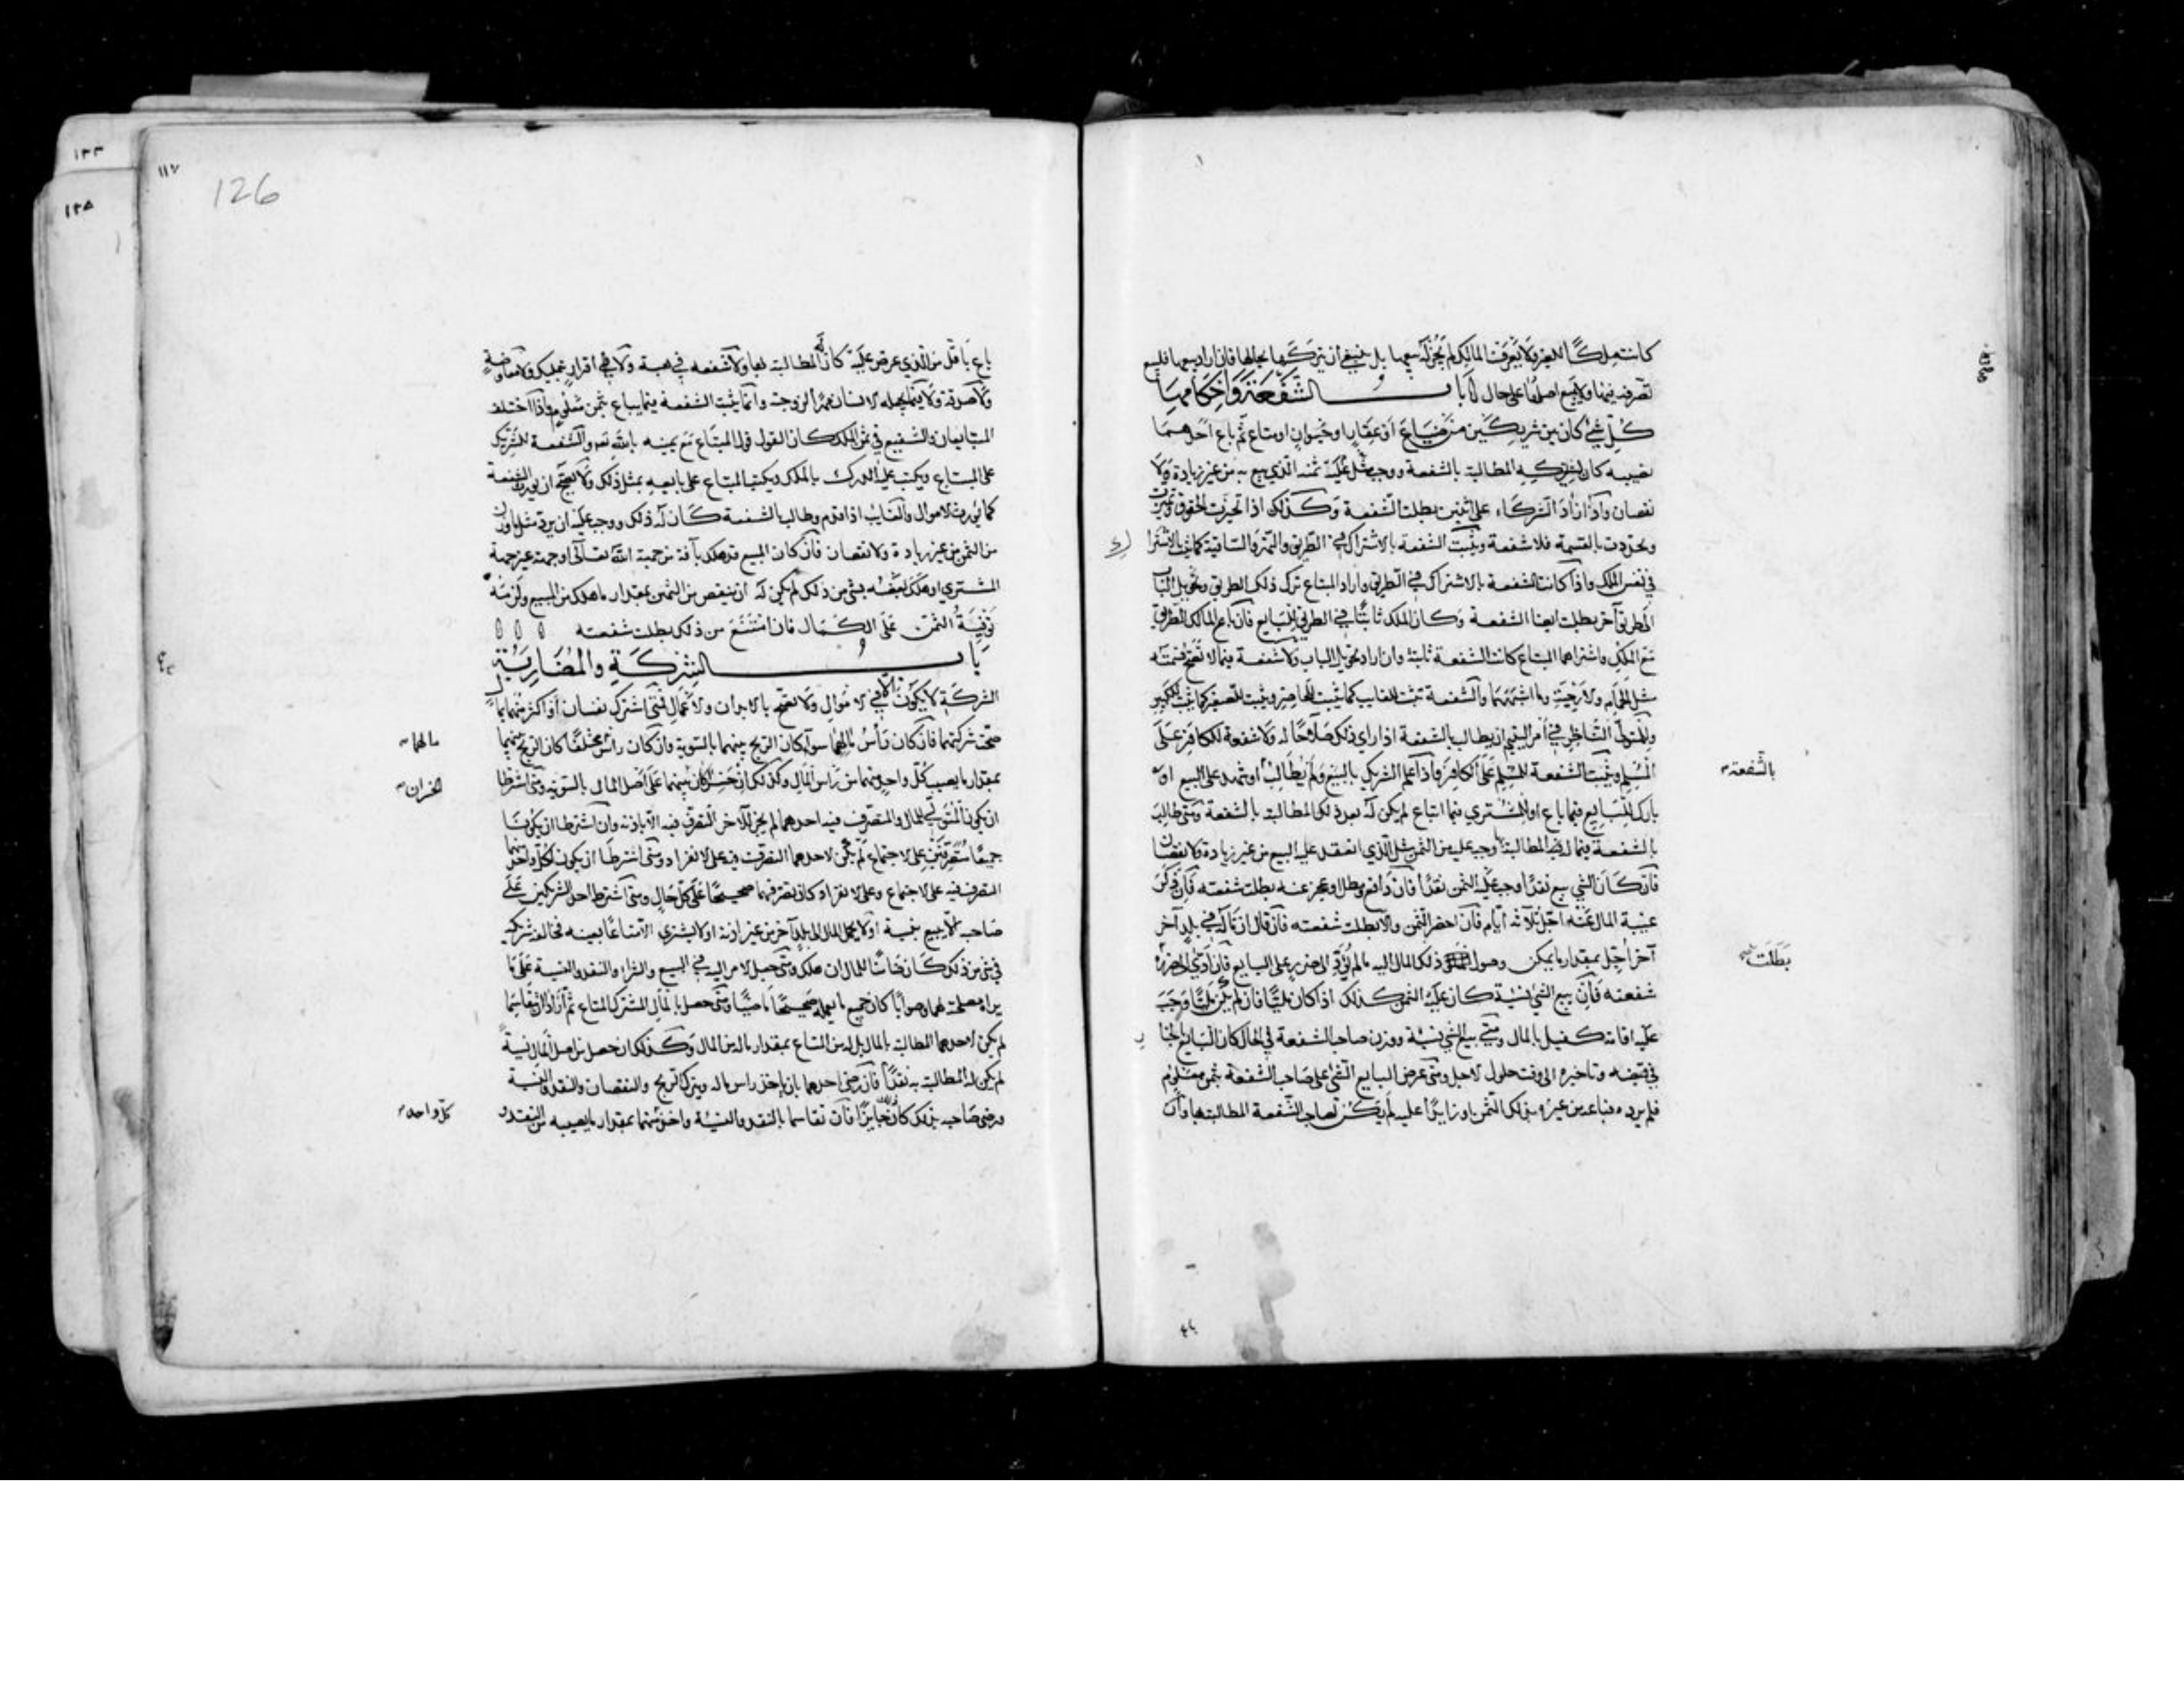 كانت ملكًا للغير ولا يعرف المالك لم يجز له بيعها بل ينبغي أن يتركها بحالها فان اراد بيعها فليبع
تصرفه فيها ولا يبيع اصلها على حال باب الشفعة وأحكامها
كل شيء كان بين شريكين من ضياع أو عقار او حيوان او متاع ثم باع أحدهما
نصيبه كان لشريكه المطالبة بالشفعة ووجب له عليه مثل ثمنه الذي بيع به من غير زيادة ولا
نقصان وإذا زاد الشركاء على اثنين بطلت الشفعة وكذلك اذا تحيزت الحقوق وتميزت
وتحددت بالقسمة فلا شفعة وتثبت الشفعة بالاشتراك في الطريق والنهر والساقية كما تثبت بالاشتراك
في نفس الملك واذا كانت الشفعة بالاشتراك في الطريق واراد المبتاع ترك ذلك الطريق وتحويل الباب
الى طريق آخر بطلت ايضا الشفعة وكان الملك ثابتًا في الطريق للبايع فان باع المالك الطريق
مع الملك واشتراهما المبتاع كانت الشفعة ثابتة وان اراد تحويل الباب ولا شفعة فيما لا تصح قسمته
مثل الحمام والأرحية وما اشبههما والشفعة تثبت للغايب كما تثبت للحاضر ويثبت للصغير كما يثبت للكبير
وللمتولي الناظر في أمر اليتيم ان يطالب بالشفعة اذا راى ذلك صلاحًا له ولا شفعة للكافر على
المسلم ويثبت الشفعة للمسلم على الكافر وإذا علم الشريك بالبيع ولم يطالب او شهد على البيع او
بارك للبايع فيما باع او للمشتري فيما ابتاع لم يكن له بعد ذلك المطالبة بالشفعة ومتى طالب
بالشفعة فيما له فيه المطالبة وجب عليه من الثمن مثل الذي انعقد عليه البيع من غير زيادة ولا نقصان
فان كان الشي بيع نقدًا وجب عليه الثمن نقدًا فان دافع ومطل او عجز عنه بطلت شفعته فان ذكر
غيبة المال عنه اجل ثلاثة أيام فان احضر الثمن والا بطلت شفعته فان قال ان ماله في بلد آخر
آخر أجل بمقدار ما يمكن وصول ذلك المال اليه ما لم يؤد الى ضرر على البايع فان أدى الى ضرره
شفعته فان بيع الشي نسية كان عليه الثمن كذلك اذا كان مليًا فان لم يكن مليًا وجب
عليه اقامة كفيل بالمال ومتى بيع الشي نسية ووزن صاحب الشفعة في الحال كان البايع بالخيار
في قبضه وتاخيره الى وقت حلول الاجل ومتى عرض البايع الشي على صاحب الشفعة بثمن معلوم
فلم يرده فباعه من غيره بذلك الثمن او زايدًا عليه لم يكن لصاحب الشفعة المطالبة بها وان
بالشفعة
بطلت
117
126
باع بأقل من الذي عرض عليه كان له المطالبة بها ولا شفعه في هبة ولا في اقرار بتمليك ولا معاوضة
ولا صدقة ولا فيما يجعله الانسان مهرًا لزوجته وانما يثبت الشفعة فيما يباع بثمن معلوم واذا اختلف
المتبايعان والشفيع في ثمن الملك كان القول قول المبتاع مع يمينه بالله تعالى والشفعة للشريك
على المبتاع ويكتب عليه الدرك بالملك ويكتب المبتاع على بايعه بمثل ذلك ولا يصح ان يورث الشفعة
كما يورث الاموال والغايب اذا قدم وطالب بالشفعة كان له ذلك ووجب عليه ان يرد مثل ما وزن
من الثمن من غير زيادة ولا نقصان فان كان المبيع قد هلك بآفة من جهة الله تعالى او جهة غير جهة
المشتري او هلك بعضه بشي من ذلك لم يكن له ان ينقص من الثمن بمقدار ما هلك من المبيع ولزمه
توفية الثمن على الكمال فان امتنع من ذلك بطلت شفعته
باب الشركة والمضاربة
الشركة لا يكون الا في الاموال ولا تصح بالابدان والاعمال فمتى اشترك نفسان أو اكثر منهما بمال
صحت شركتهما فان كان رأس مالهما سواء كان الربح بينهما بالسوية وان كان راس مختلفًا كان الربح بينهما
بمقدار ما يصيب كل واحد منهما من راس المال وكذلك ان خسرا كان بينهما على أصل المال بالسوية ومتى اشترطا
ان يكون المتولي للمال والمتصرف فيه احدهما لم يجز للآخر التصرف فيه الا باذنه وان اشترطا ان يكونا
جميعًا متصرفين على الاجتماع لم يكن لاحدهما التصرف فيه على الانفراد ومتى اشترطا ان يكون لكل واحد منهما
التصرف فيه على الاجتماع وعلى الانفراد كان تصرفهما صحيحًا على كل حال ومتى اشترط احد الشريكين على
صاحبه الا يبيع نسية اولا يحمل المال الى بلد آخر من غير اذنه اولا يشتري الا متاعًا بعينه فخالفه شريكه
في شي من ذلك كان ضامنًا للمال ان هلك ومتى جعل الامر اليه في البيع والشراء والنقد والنسية على ما
يراه مصلحة لهما وصوابًا كان جميع ما يعمله صحيحًا ماضيًا ومتى حصل بالمال المشترك المتاع ثم أرادا ان يتقاسما
لم يكن لاحدهما المطالبة بالمال بل له من المتاع بمقدار ماله من المال وكذلك ان حصل من اصل المال نسية
لم يكن له المطالبة به نقدًا فان رضي احدهما بان ياخذ راس ماله ويترك الربح والنقصان والنقد والنسية
ورضي صاحبه بذلك كان جايزًا فان تقاسما بالنقد والنسية واخذ منهما بمقدار ما يصيبه من النقد و
مالهما
الخسران
كل واحد